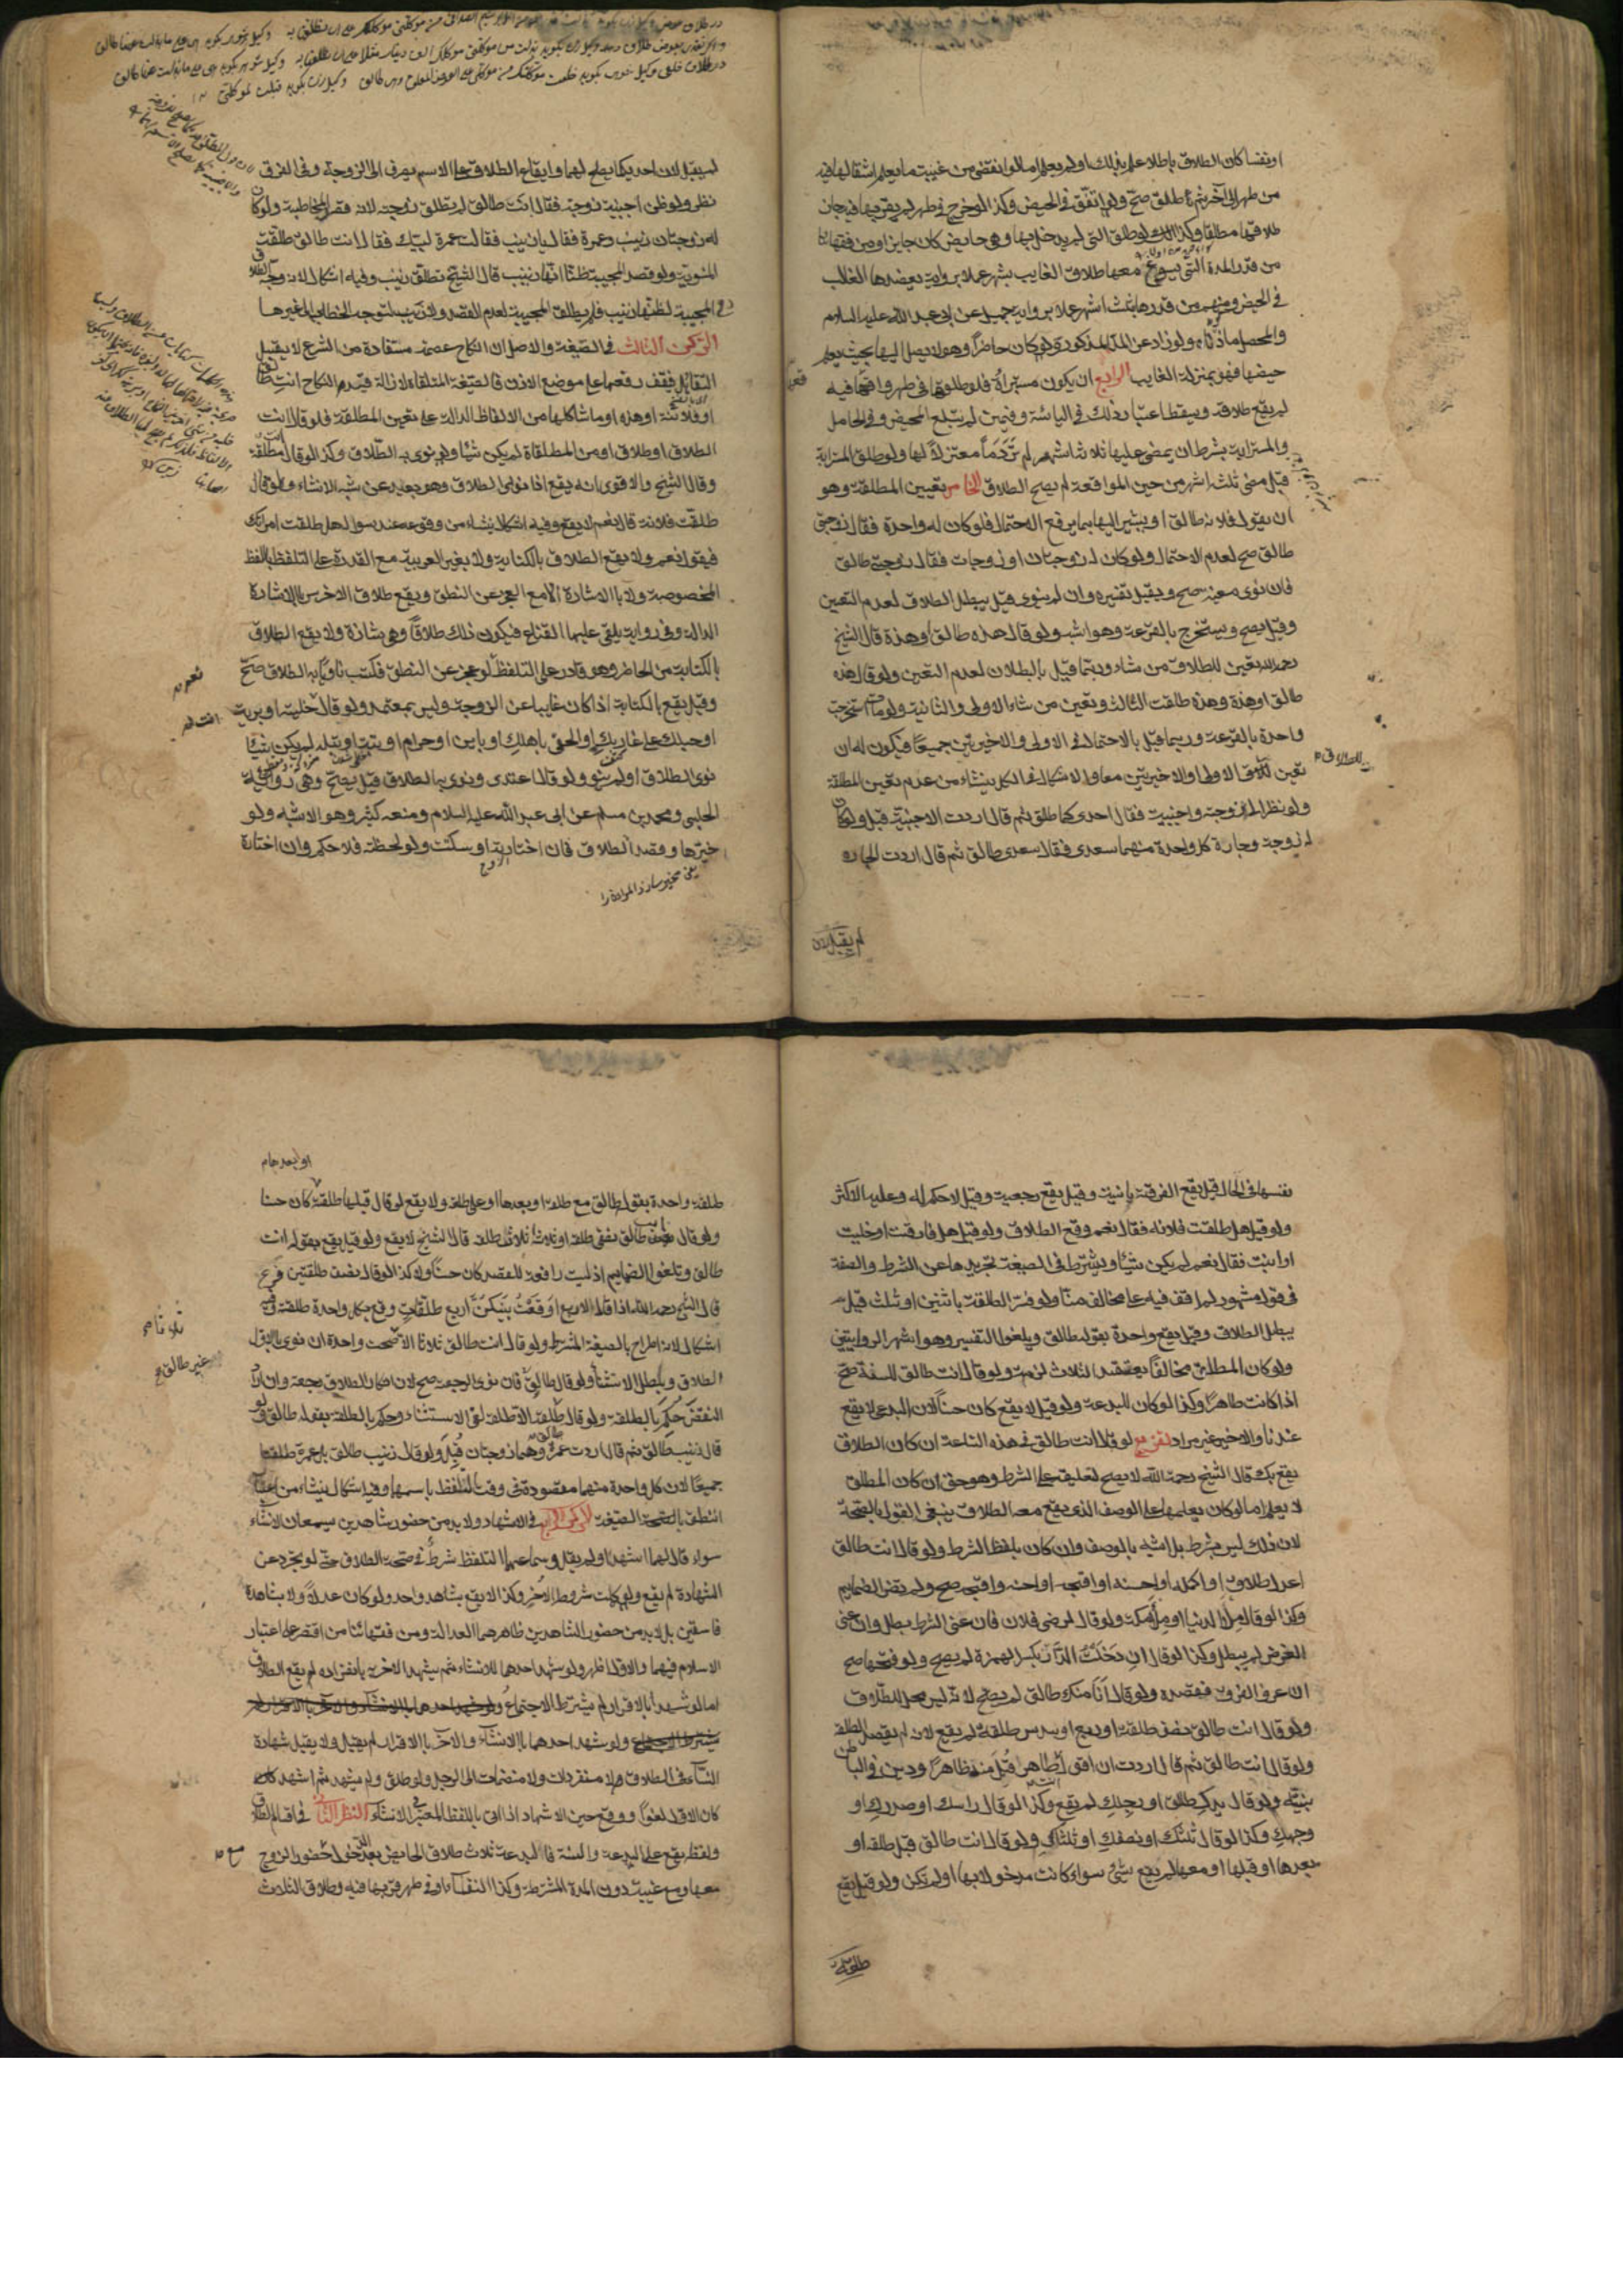 او نفسا كان الطلاق باطلا علم بذلك او لم يعلم اما لو انقضى من غيبته ما يعلم انتقالها فيه
من طهر الى آخر ثم طلق صح ولو اتفق في الحيض وكذا لو خرج في طهر لم يقربها فيه جاز
طلاقها مطلقا وكذا لو طلق التى لم يدخل بها وهى حايض كان جايزا ومن فقهائنا
من قدر المدة التى يسوغ معها طلاق الغايب بشهر عملا برواية يعضدها الغالب
في الحيض ومنهم من قدرها بثلثة اشهر عملا برواية جميل عن ابى عبد الله عليه السلام
والمحصل ما ذكرناه ولو زاد عن المدة المذكورة ولو كان حاضرا وهو لا يصل اليها بحيث يعلم
حيضها فهو بمنزلة الغايب الرابع ان يكون مستبرأة فلو طلقها في طهر واقعها فيه
لم يقع طلاقه ويسقط اعتبار ذلك في اليائسة وفيمن لم يبلغ المحيض وفي الحامل
والمسترابة بشرط ان يمضى عليها ثلاثة اشهر لم تر دما معتزلا لها ولو طلق المسترابة
قبل مضى ثلثة اشهر من حين المواقعة لم يصح الطلاق الخامس تعيين المطلقة وهو
ان يقول فلانة طالق او يشير اليها بما يرفع الاحتمال فلو كان له واحدة فقال زوجتى
طالق صح لعدم الاحتمال ولو كان له زوجتان او زوجات فقال زوجتى طالق
فان نوى معينة صح ويقبل تفسيره وان لم ينوى قيل يبطل الطلاق لعدم التعيين
وقيل يصح ويستخرج بالقرعة وهو اشبه ولو قال هذه طالق او هذه قال الشيخ
رحمه الله يعين للطلاق من شاء وربما قيل بالبطلان لعدم التعيين ولو قال هذه
طالق او هذه وهذه طالقت الثالثة ويعين من شاء الاولى والثانية ولو مات استخرجت
واحدة بالقرعة وربما قيل بالاحتمال في الاولى والاخيرتين جميعا فيكون له ان
يعين للطلاق الاولى او الاخيرتين معا والاشكال في الكل ينشاء من عدم تعيين المطلقة
ولو نظر الى زوجته واجنبية فقال احدى كما طالق ثم قال اردت الاجنبية قبل ولو كان
له زوجة وجارة كل واحدة منهما سعدى فقال سعدى طالق ثم قال اردت الجارة
لم يقبل لان
لم يقبل لان احديكما يصلح لهما وايقاع الطلاق على الاسم يصرف الى الزوجة وفي الفرق
نظر ولو ظن اجنبية زوجته فقال انت طالق لم تطلق زوجته لانه قصد المخاطبة ولو كان
له زوجتان زينب وعمرة فقال يا زينب فقالت عمرة لبيك فقال انت طالق طلقت
المنوية ولو قصد المجيبة ظنا انها زينب قال الشيخ تطلق زينب وفيه اشكال لانه وجه الطلاق
الى المجيبة لظنها زينب فلم يطلق المجيبة لعدم القصد ولا زينب لتوجه الخطاب الى غيرها
الركن الثالث في الصيغة والاصل ان النكاح عصمة مستفادة من الشرع لا يقبل
التقايل فيقف رفعها على موضع الاذن فالصيغة المتلقاة لازالة قيد النكاح انت طالق
او فلانة او هذه او ما شاكلها من الالفاظ الدالة على تعيين المطلقة فلو قال انت
الطلاق او طلاق او من المطلقات لم يكن شيئا ولو نوى به الطلاق وكذا لو قال مطلقة
وقال الشيخ والاقوى انه يقع اذا نوى الطلاق وهو بعيد عن شبه الانشاء ولو قال
طلقت فلانة قال نعم لا يقع وفيه اشكال ينشاء من وقوعه عند سؤاله هل طلقت امراتك
فيقول نعم ولا يقع الطلاق بالكناية ولا بغير العربية مع القدرة على التلفظ باللفظ
المخصوصة ولا بالاشارة الا مع العجز عن النطق ويقع طلاق الاخرس بالاشارة
الدالة وفي رواية يلقى عليها القناع فيكون ذلك طلاقا وهى شاذة ولا يقع الطلاق
بالكتابة من الحاضر وهو قادر على التلفظ لو عجز عن النطق فكتب ناويا به الطلاق صح
وقيل يقع بالكتابة اذا كان غايبا عن الزوجة وليس بمعتمد ولو قال خلية او برية
او حبلك على غاربك او الحقى باهلك او باين او حرام او بتة او بتلة لم يكن شيئا
نوى الطلاق او لم ينو ولو قال اعتدى ونوى به الطلاق قيل يصح وهى رواية
الحلبى ومحمد بن مسلم عن ابى عبد الله عليه السلام ومنعه كثير وهو الاشبه ولو
خيرها وقصد الطلاق فان اختارته او سكتت ولو لحظة فلا حكم وان اختارت
نفسها في الحال قيل يقع الفرقة باينة وقيل يقع رجعية وقيل لا حكم له وعليه الاكثر
ولو قيل هل طلقت فلانه فقال نعم وقع الطلاق ولو قيل هل فارقت او خليت
او ابنت فقال نعم لم يكن شيئا ويشترط في الصيغة تجريدها عن الشرط والصفة
في قول مشهور لم اقف فيه على مخالف منا ولو فسر الطلقة باثنين او ثلث قيل
يبطل الطلاق وقيل يقع واحدة بقوله طالق ويلغوا التفسير وهو اشهر الروايتين
ولو كان المطلق مخالفا يعتقد الثلاث لزمته ولو قال انت طالق للسنة صح
اذا كانت طاهرا وكذا لو كان للبدعة ولو قيل لا يقع كان حسنا لان البدعى لا يقع
عندنا والاخير غير مراد تفريع لو قال انت طالق في هذه الساعة ان كان الطلاق
يقع بك قال الشيخ رحمه الله لا يصح لتعليقه على الشرط وهو حق ان كان المطلق
لا يعلم اما لو كان يعلمها على الوصف الذى يقع معه الطلاق ينبغى القول بالصحة
لان ذلك ليس بشرط بل اشبه بالوصف وان كان بلفظ الشرط ولو قال انت طالق
اعدل طلاق او اكمله او احسنه او اقبحه او احسنه واقبحه صح ولم يضر الضمايم
وكذا لو قال ملأ الدنيا او ملأ مكة ولو قال لرضى فلان فان عنى الشرط بطل وان عنى
الغرض لم يبطل وكذا لو قال ان دخلت الدار بكسر الهمزة لم يصح ولو فتحها صح
ان عرف الفرق فقصده ولو قال انا منك طالق لم يصح لانه ليس محل للطلاق
ولو قال انت طالق نصف طلقة او ربع او سدس طلقة لم يقع لانه لم يقصد الطلقة
ولو قال انت طالق ثم قال اردت ان اقول طاهر قبل منه ظاهرا ودين في الباطن
بنيته ولو قال يدك طالق او رجلك لم يقع وكذا لو قال راسك او صدرك او
وجهك وكذا لو قال ثلثك او نصفك او ثلثاك ولو قال انت طالق قبل طلقة او
بعدها او قبلها او معها لم يقع شئ سواء كانت مدخولا بها او لم تكن ولو قيل يقع
طلقة
او بعدها
طلقة واحدة بقوله طالق مع طلقة او بعدها او على طلقة ولا يقع لو قال قبلها طلقة كان حسنا
ولو قال انت طالق نصفى طلقة او ثلاثة اثلاث طلقة قال الشيخ لا يقع ولو قيل يقع بقوله انت
طالق ويلغوا الضمايم اذ ليست رافعة للقصد كان حسنا ولا كذا لو قال نصف طلقتين فرع
قال الشيخ رحمه الله اذا قال لاربع اوقعت بينكن اربع طلقات وقع بكل واحدة طلقة وفيه
اشكال لانه اطراح بالصيغة المشترطة ولو قال انت طالق ثلاثا الا ثلثا صحت واحدة ان نوى بالاول
الطلاق وبطل الاستثناء ولو قال طالق فان نوى الرجعة صح لان انكار الطلاق رجعة وان اراد
النقض حكم بالطلقة ولو قال طلقة الا طلقة لغى الاستثناء وحكم بالطلقة بقوله طالق ولو
قال زينب طالق ثم قال اردت عمرة وهما زوجتان قبل ولو قال زينب طالق بل عمرة طلقتا
جميعا لان كل واحدة منهما مقصودة في وقت التلفظ باسمها وفيه اشكال ينشاء من اعتبار
النطق بالصيغة الركن الرابع في الاشهاد ولا بد من حضور شاهدين يسمعان الانشاء
سواء قال لهما اشهدا او لم يقل وسماعهما التلفظ شرط في صحة الطلاق حتى لو تجرد عن
الشهادة لم يقع ولو كملت شروطه الاخر وكذا لا يقع بشاهد واحد ولو كان عدلا ولا بشهادة
فاسقين بل لا بد من حضور الشاهدين ظاهرهما العدالة ومن فقهائنا من اقتصر على اعتبار
الاسلام فيهما والاول اظهر ولو شهد احدهما للانشاء ثم شهد الاخر به بانفراده لم يقع الطلاق
اما لو شهدا بالاقرار لم يشترط الاجتماع ولو شهد احدهما بالانشاء والاخر بالاقرار لم
يشترط الاجتماع ولو شهد احدهما بالانشاء والاخر بالاقرار لم يقبل ولا يقبل شهادة
النساء في الطلاق لا منفردات ولا منضمات الى الرجل ولو طلق ولم يشهد ثم اشهد كان
كان الاول لغوا ووقع حين الاشهاد اذا اتى باللفظ المعتبر في الانشاء النظر الثانى في اقسام الطلاق
ولفظه يقع على البدعة والسنة فالبدعة ثلاث طلاق الحايض بعد الدخول مع حضور الزوج
معها ومع غيبته دون المدة المشترطة وكذا النفساء او في طهر قربها فيه وطلاق الثلاث